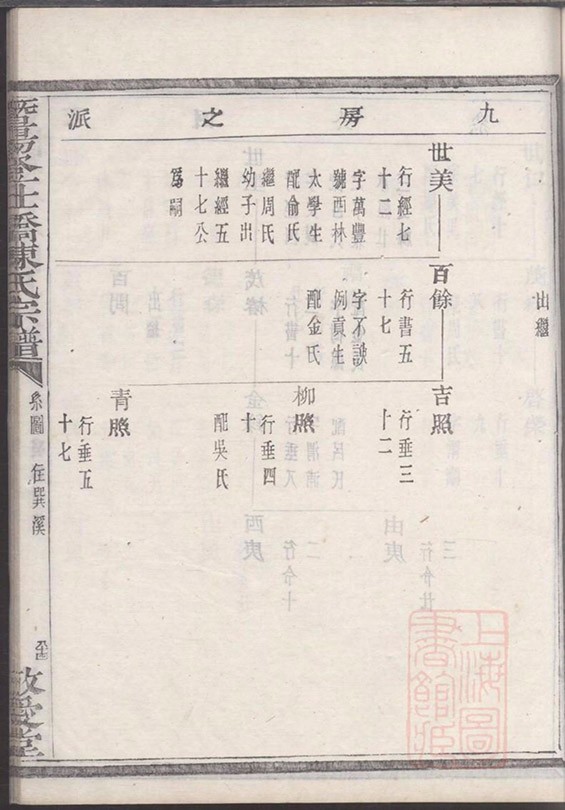 九房之派
出繼
世美
行經七
十二
字萬豐
號西林
太學生
配俞氏
繼周氏
幼子出
繼經五
十七公
為嗣
百餘
行書五
十七
字不諛
例貢生
配金氏
吉照
行垂三
十二
配吳氏
柳照
行垂四
十
青照
行垂五
十七
陳氏宗譜
系圖
住巽溪
敬愛堂
上海圖書館藏